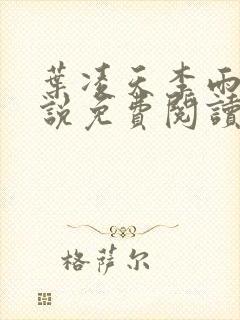 葉凌天李雨
說免費閱讀
格萨尔